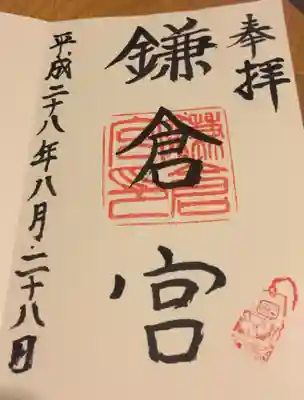 奉拝
鎌倉宮
平成二十八年八月二十八日